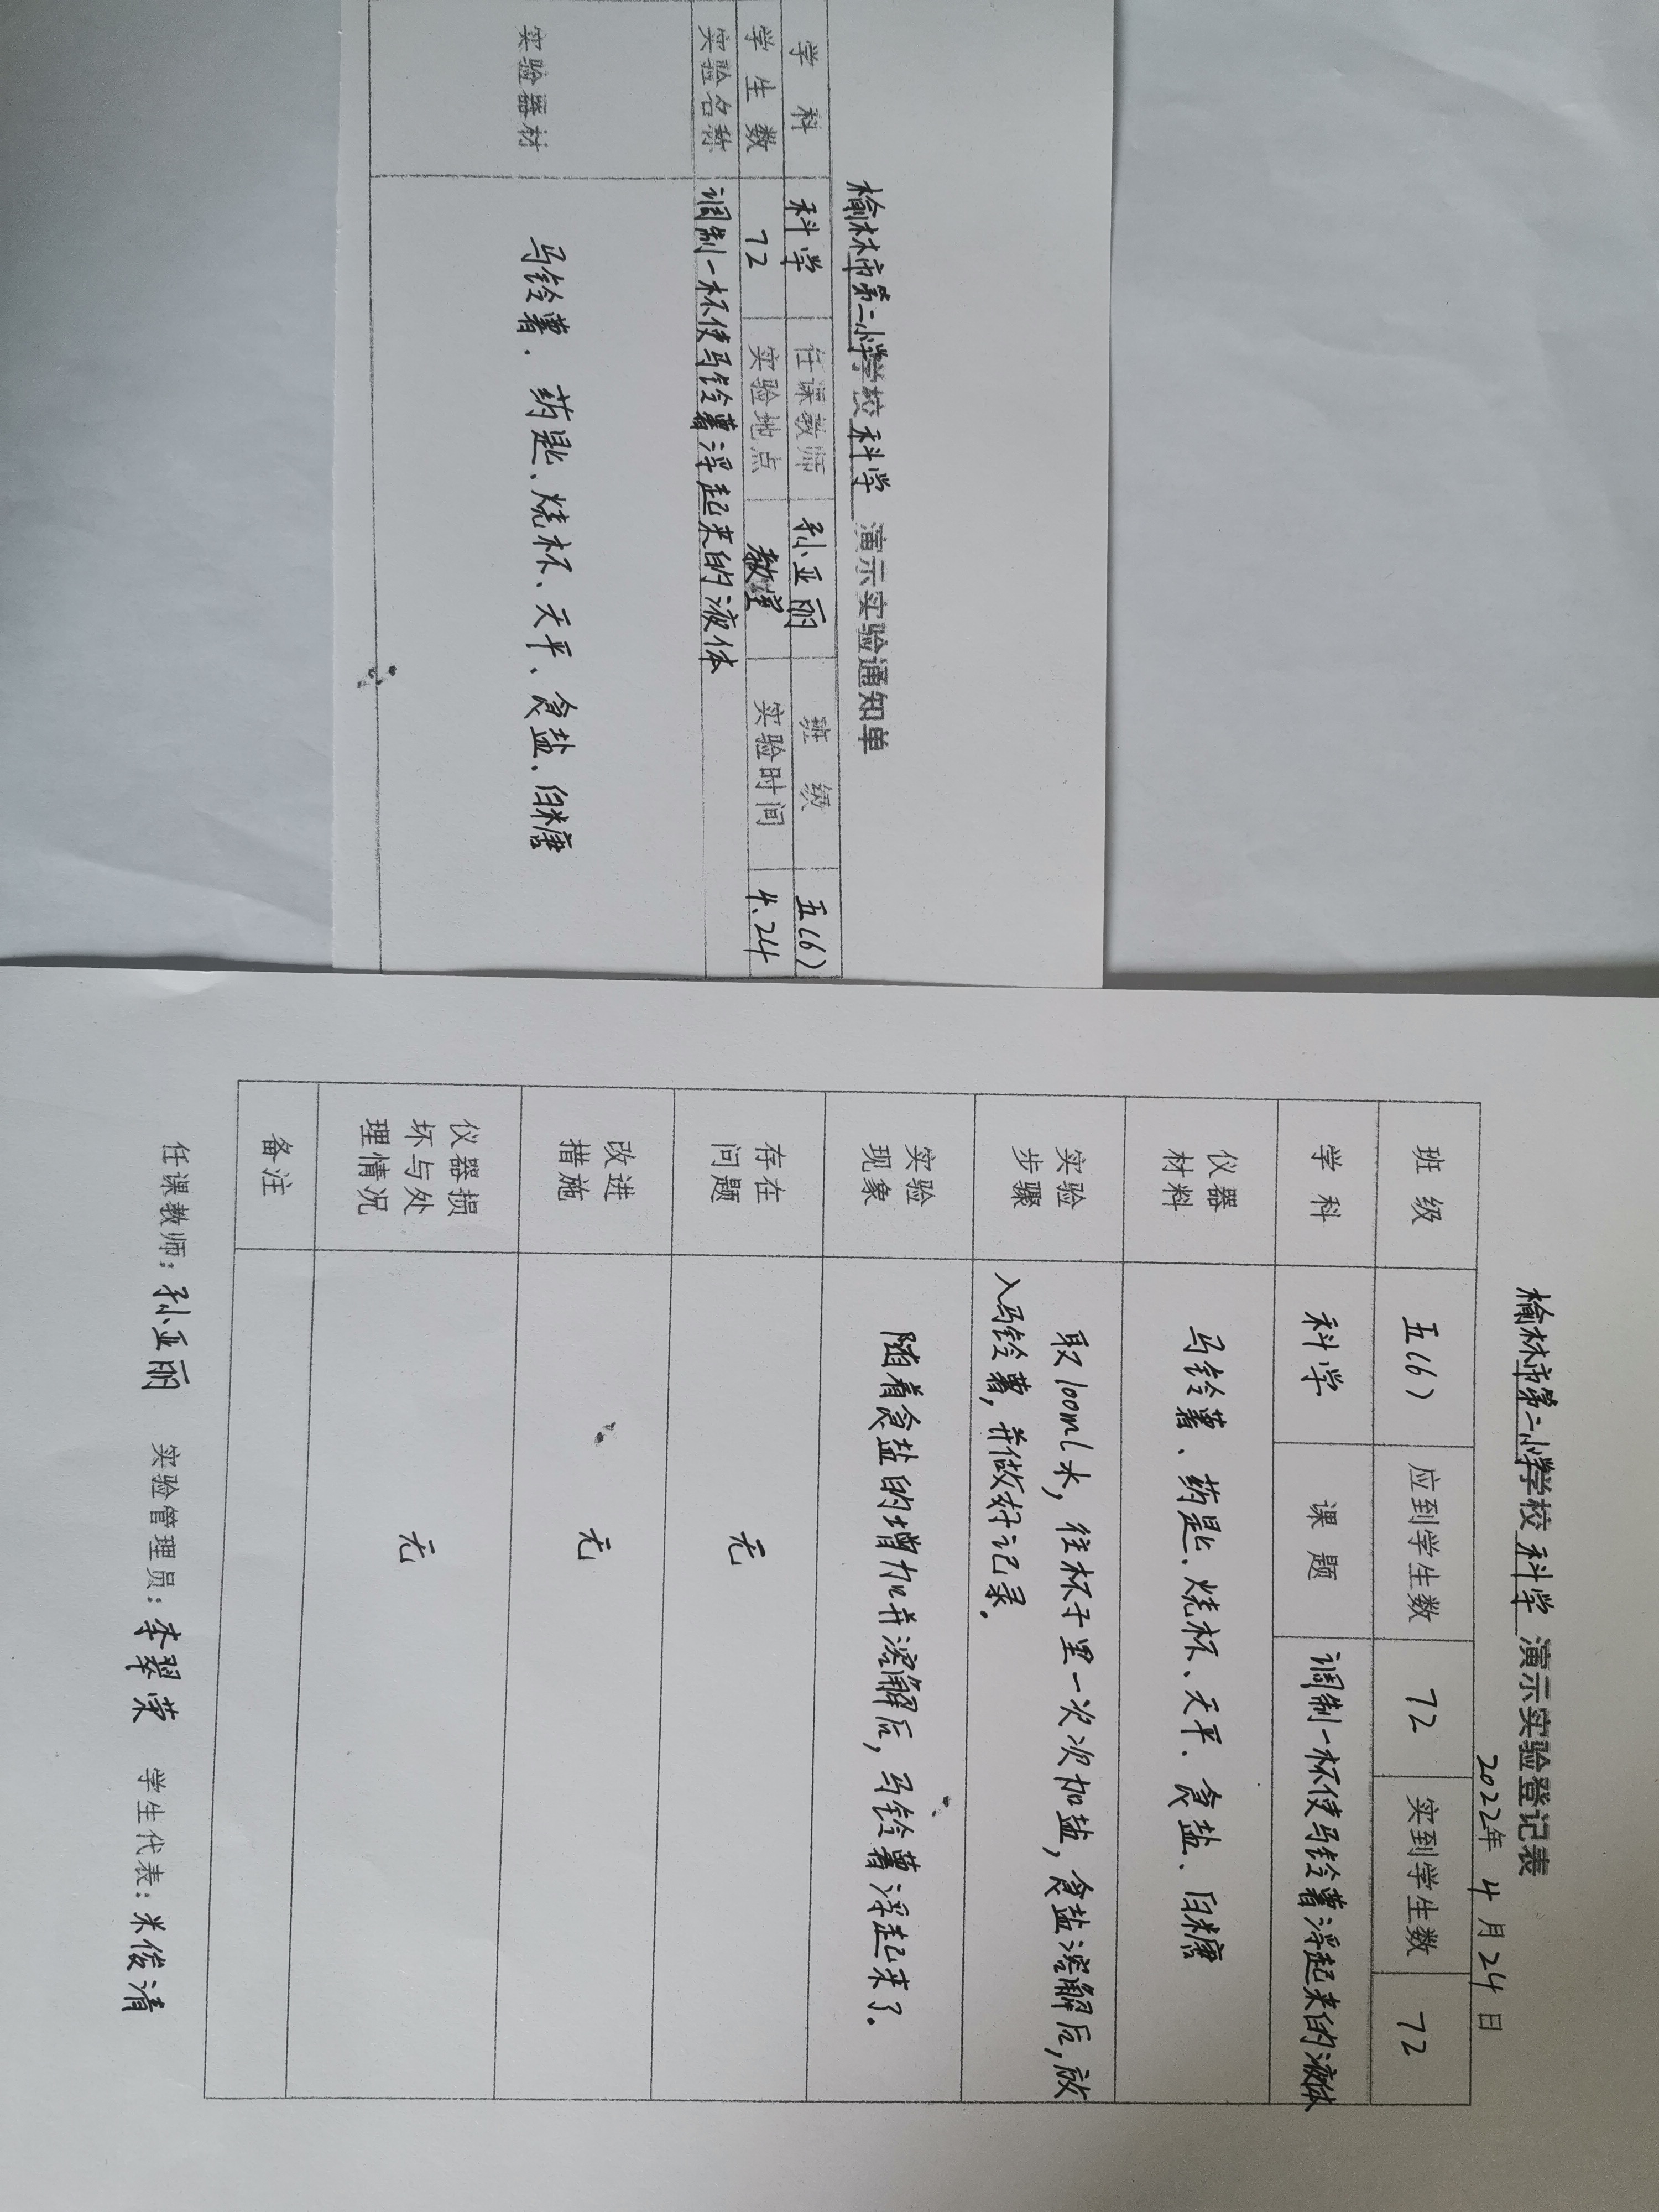 榆林市第二小学学校 科学 演示实验通知单
学 科 科学 任课教师 孙亚丽 班 级 五(6)
学生数 72 实验地点 教室 实验时间 4.24
实验名称 调制一杯使马铃薯浮起来的液体
实验器材 马铃薯、药匙、烧杯、天平、食盐、白糖
榆林市第二小学学校 科学 演示实验登记表
2022年 4 月 24 日
班 级 五(6) 应到学生数 72 实到学生数 72
学 科 科学 课 题 调制一杯使马铃薯浮起来的液体
仪器
材料
马铃薯、药匙、烧杯、天平、食盐、白糖
实验
步骤
取100ml水,往杯子里一次次加盐,食盐溶解后,放
入马铃薯,并做好记录。
实验
现象
随着食盐的增加并溶解后,马铃薯浮起来了。
存在
问题
无
改进
措施
无
仪器损
坏与处
理情况
无
备注
任课教师:孙亚丽 实验管理员:李翠荣 学生代表:米俊清